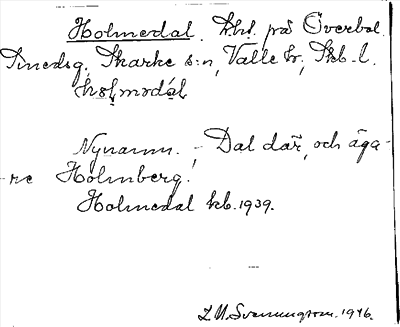 Holmedal. Lht. på Överbol
Smedsg. Skarke s:n, Valle hr, Skb. l.
hòlmədál
Nynamn. - Dal där, och äga-
re Holmberg.
Holmedal kb. 1939.
Z. M. Svenningson. 1946.